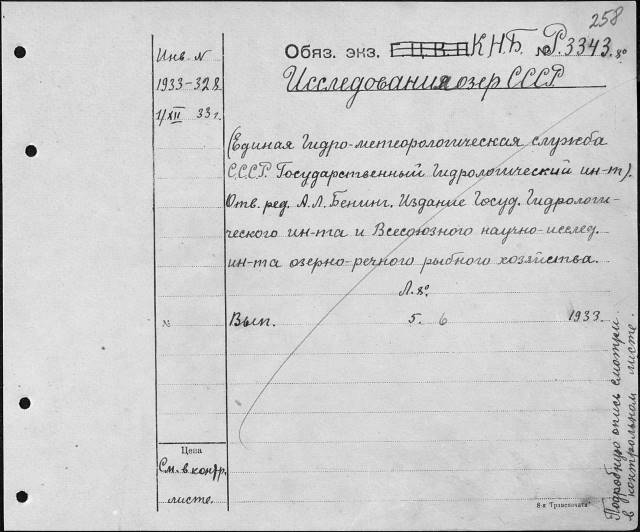 258
Инв. N
1933-328
1/XII 33 г.
Обяз. экз. Г.Ц.В.П К.Н.Б. № Р.3343. 8°
Исследования озер СССР
(Единая Гидро-метеорологическая служба
СССР. Государственный Гидрологический ин-т).
Отв. ред. А.Л. Бенинг. Издание Госуд. Гидрологи-
ческого ин-та и Всесоюзного научно-исслед.
ин-та озерно-речного рыбного хозяйства.
Л. 8°.
№ Вып. 5. 6 1933.
Цена
См. в контр.
листе.
Подробную опись смотри
в контрольном листе.
8-я "Транспечати"